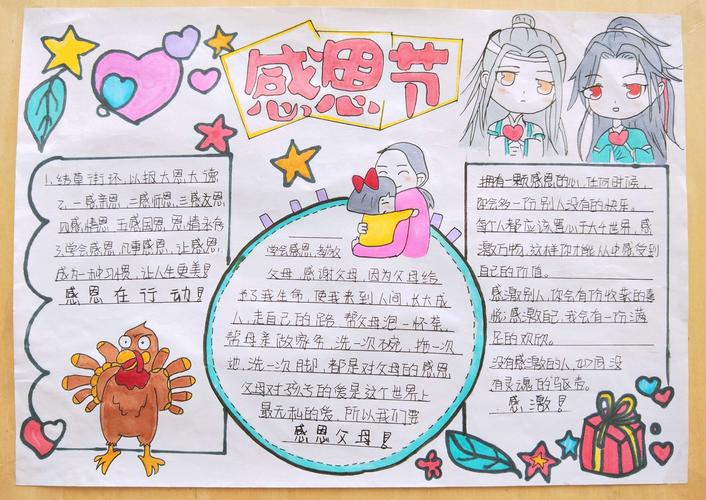 感恩节
1、结草衔环,以报大恩大德
2、一感亲恩,二感师恩,三感友恩
四感情恩,五感国恩,恩情永存
3.学会感恩,凡事感恩,让感恩
成为一种习惯,让人生更美!
感恩在行动!
学会感恩,孝敬
父母,感谢父母,因为父母给
予了我生命,使我来到人间,长大成
人,走自己的路,帮父母泡一杯茶,
帮母亲做家务,洗一次碗,拖一次
地,洗一次脚,都是对父母的感恩
父母对孩子的爱是这个世界上
最无私的爱,所以我们要
感恩父母!
拥有一颗感恩的心,任何时候,
你会多一份别人没有的快乐。
每个人都应该置心于大千世界,感
激万物,这样你才能从中感受到
自己的价值。
感激别人,你会有份收获的喜
悦;感激自己,我会有一份满
足的欢欣。
没有感激的人,如同没
有灵魂的躯壳。
感激!